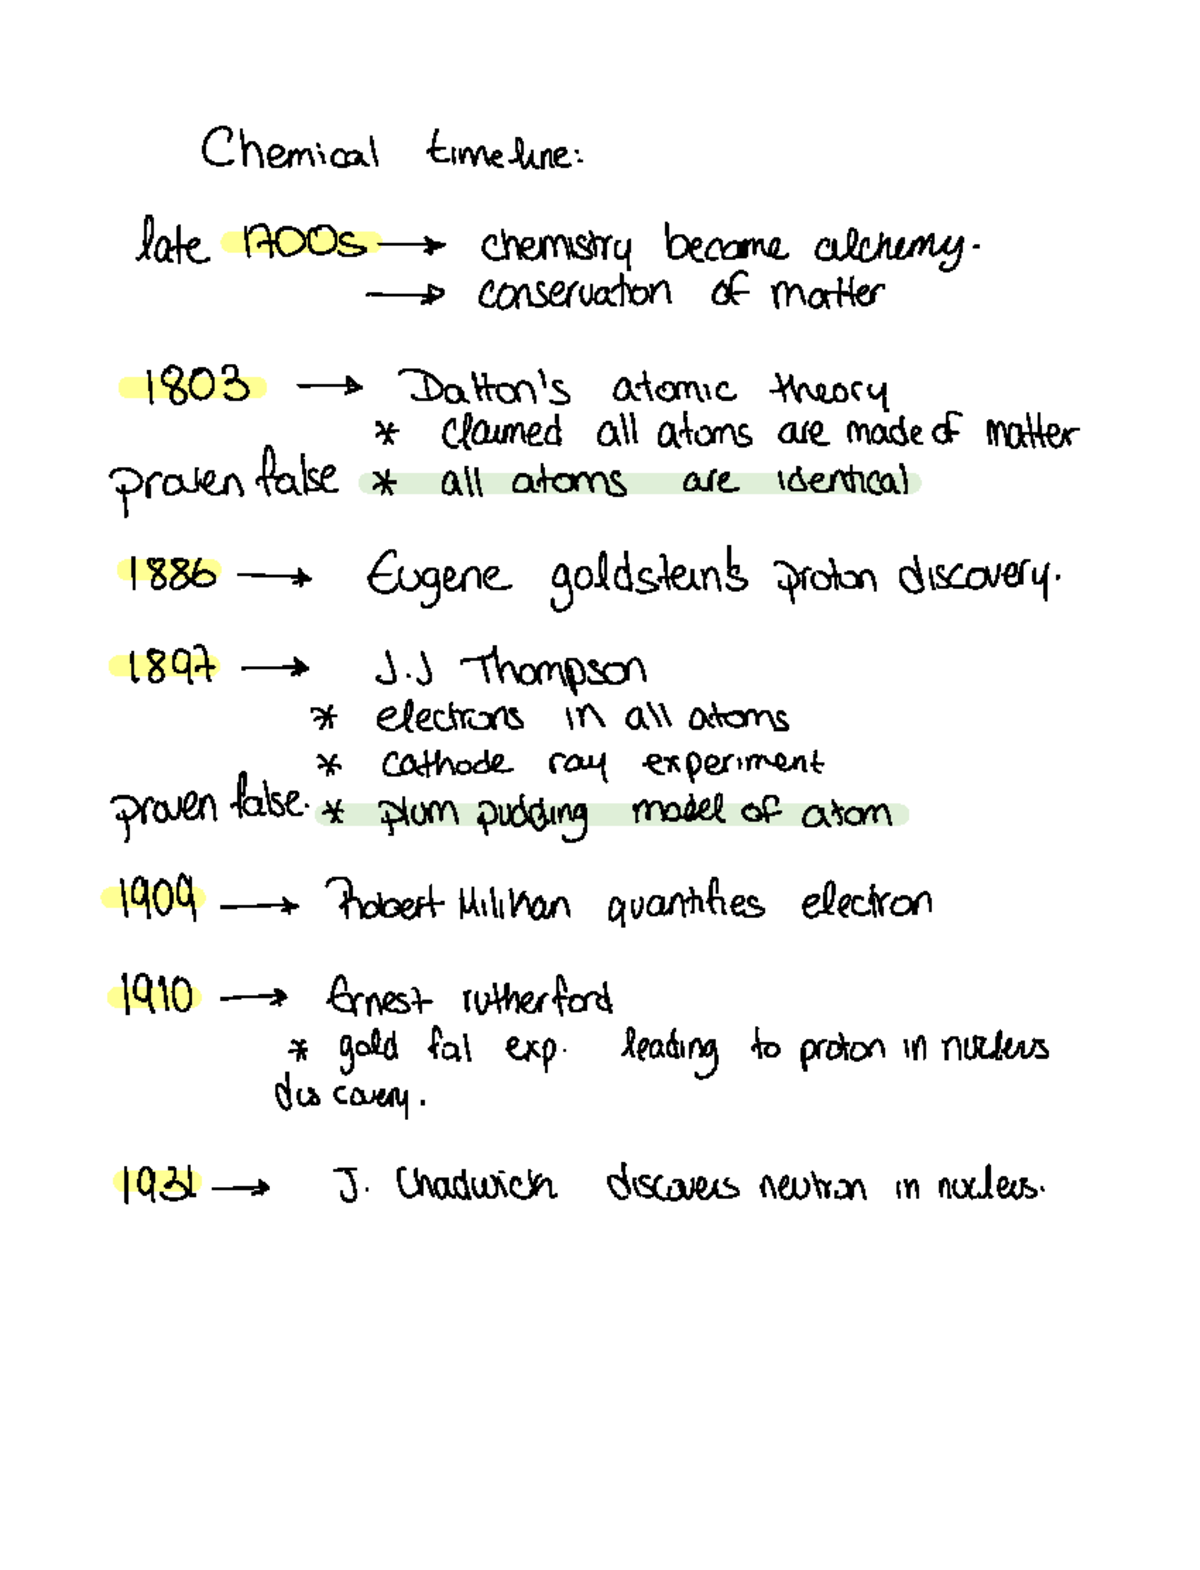 Chemical timeline:
late 1700s → chemistry become alchemy.
→ conservation of matter
1803 → Dalton's atomic theory
* claimed all atoms are made of matter
proven false * all atoms are identical
1886 → Eugene goldstein's proton discovery.
1897 → J.J Thompson
* electrons in all atoms
* cathode ray experiment
proven false. * plum pudding model of atom
1909 → Robert Milikan quantifies electron
1910 → Ernest rutherford
* gold foil exp. leading to proton in nucleus
discovery.
1931 → J. Chadwick discovers neutron in nucleus.